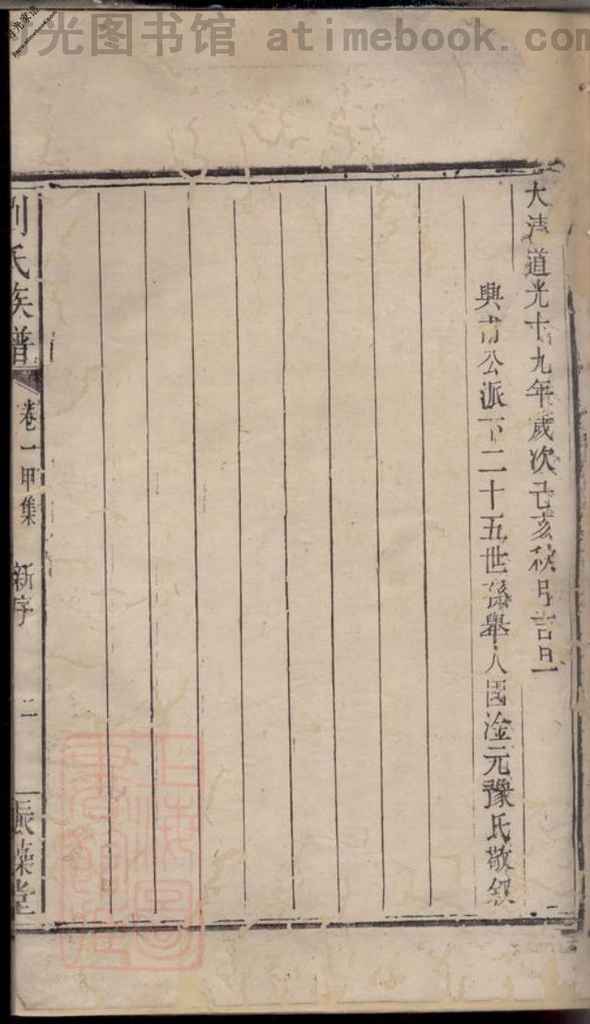 光图书馆 atimebook.com
大清道光十九年歲次己亥秋月吉旦
興甫公派下二十五世孫舉人國淦元豫氏敬敘
劉氏族譜
卷一甲集
新序
二
振藻堂